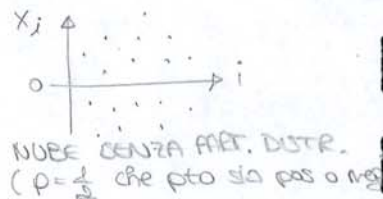 Xi
0
i
NUBE SENZA PART. DISTR.
(p=1/2 che pto sia pos o neg